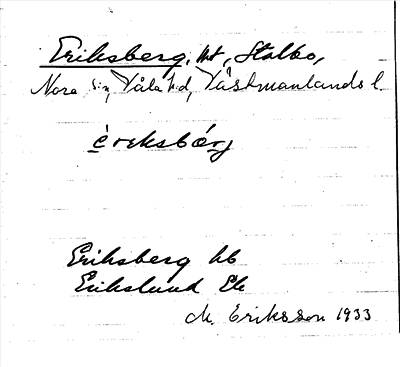 Eriksberg, ht, Stalbo,
Nora sn, Våla hd, Västmanlands l.
èreksbárj
Eriksberg hb
Erikslund Ek
M. Eriksson 1933